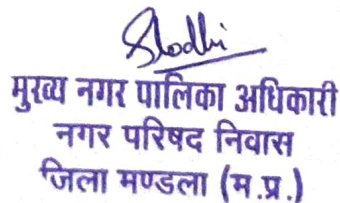 Slodhi
मुख्य नगर पालिका अधिकारी
नगर परिषद निवास
जिला मण्डला (म.प्र.)